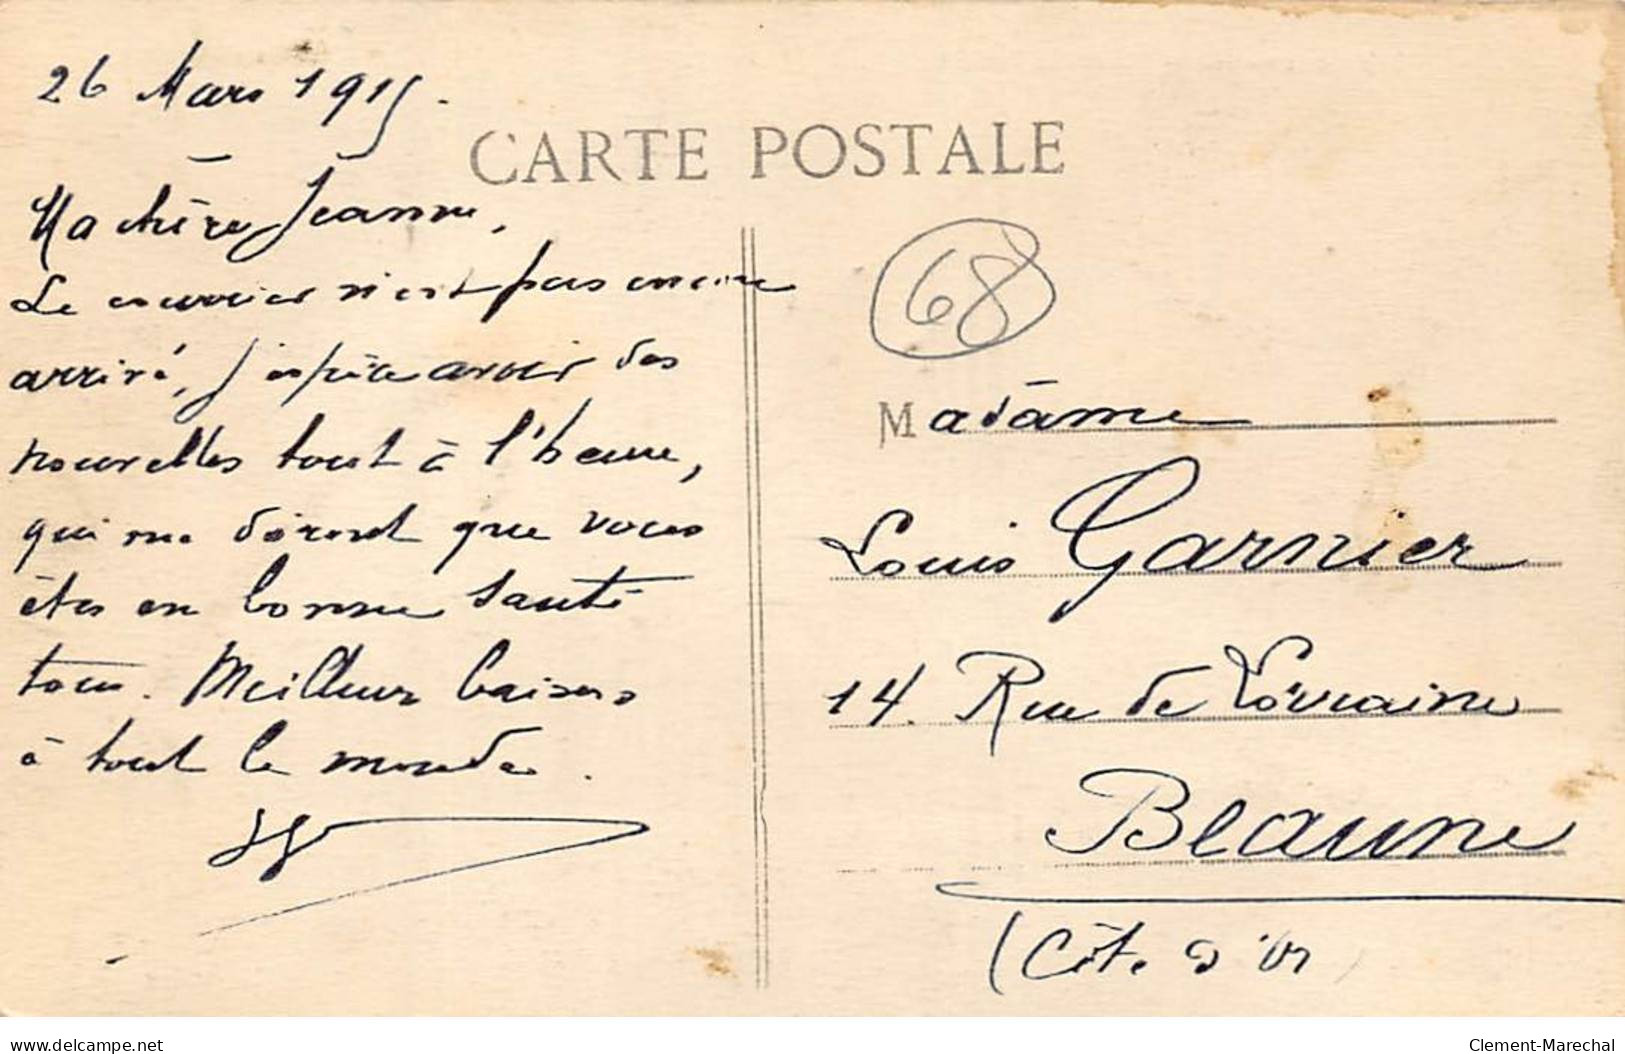 26 Mars 1915.
CARTE POSTALE
Ma chère Jeanne,
Le courrier n'est pas encore
arrivé, j'espère avoir des
nouvelles tout à l'heure,
qui me diront que vous
êtes en bonne santé
tous. Meilleurs baisers
à tout le monde.
68
Madame
Louis Garnier
14. Rue de Lorraine
Beaune
(Côte d'Or)
www.delcampe.net
Clement-Marechal